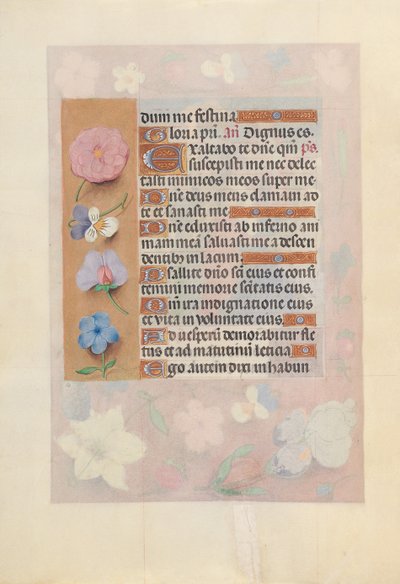 dum me festina
Gloria pri. an Dignus es.
Exaltabo te dñe qm ps.
suscepisti me nec delec
tasti inimicos meos super me
Dñe deus meus clamaui ad
te et sanasti me
Dñe eduxisti ab inferno ani
mam meā saluasti me a descen
dentibus in lacum.
Psallite dño sc̄i eius et confi
temini memorie sc̄itatis eius.
Qm ira in indignatione eius
et vita in voluntate eius.
Ad vesperū demorabitur fle
tus et ad matutinū leticia
Ego autem dixi in habun